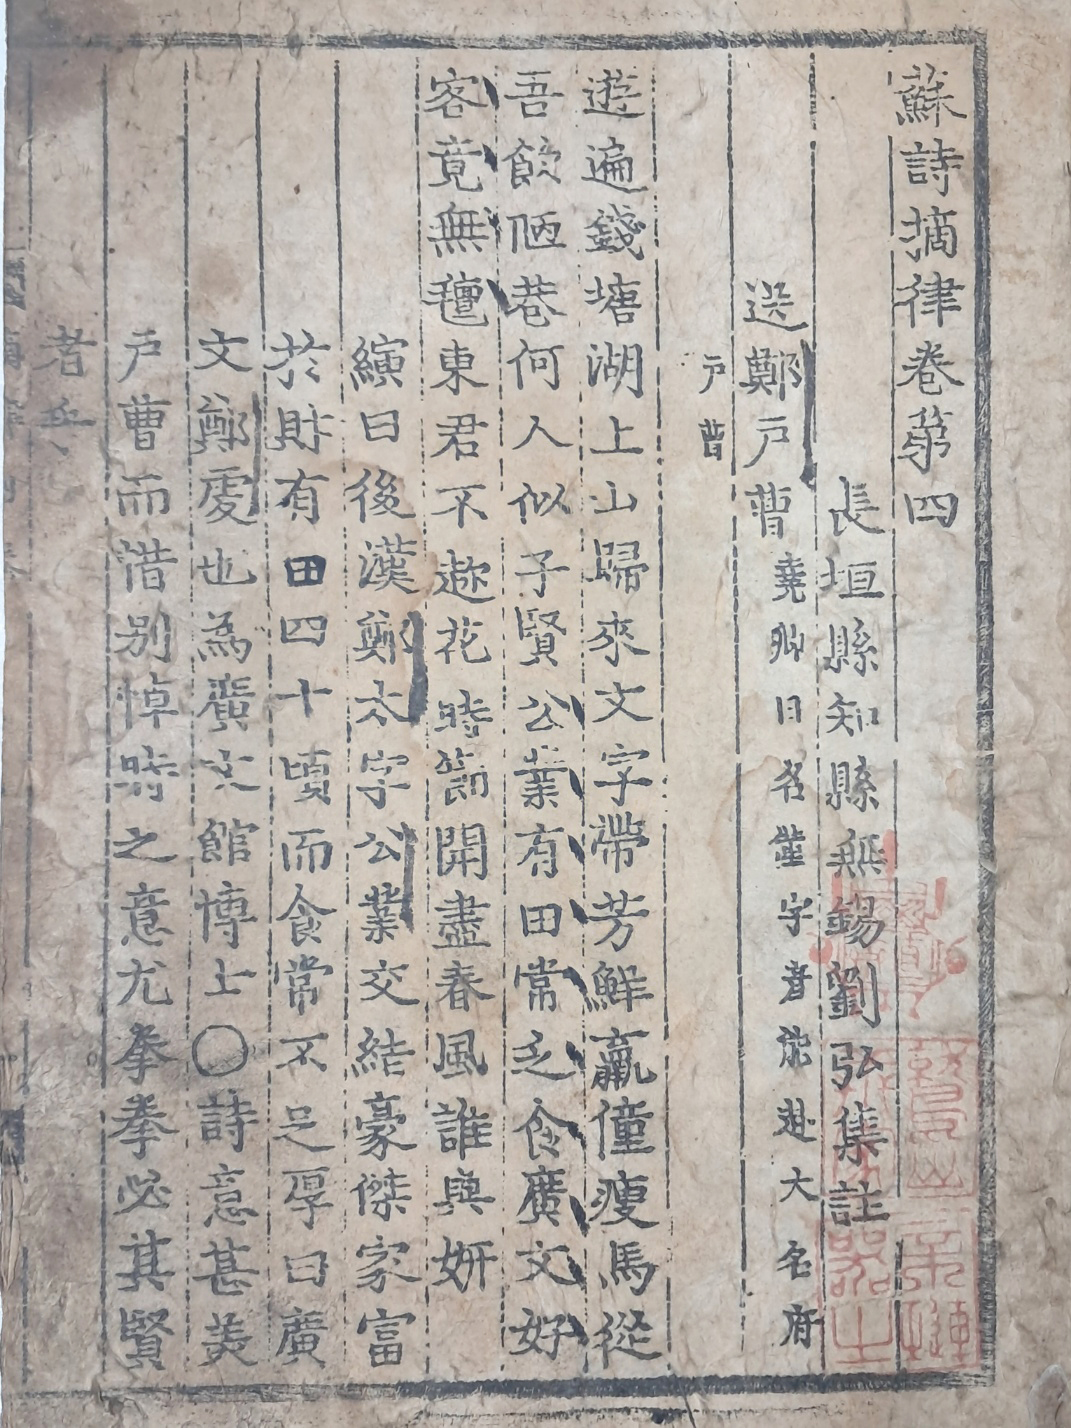 蘇詩摘律卷第四
長垣縣知縣無錫劉弘集註
送鄭戶曹堯卿曰名僅字彥能赴大名府
戶曹
遊遍錢塘湖上山歸來文字帶芳鮮羸僮瘦馬從
吾飲陋巷何人似子賢公業有田常乏食廣文好
客竟無氊東君不趂花時節開盡春風誰與妍
縯曰後漢鄭太字公業交結豪傑家富
於財有田四十頃而食常不足厚曰廣
文鄭虔也為廣文館博士〇詩意甚美
戶曹而惜別悼時之意尤拳拳必其賢
者乎